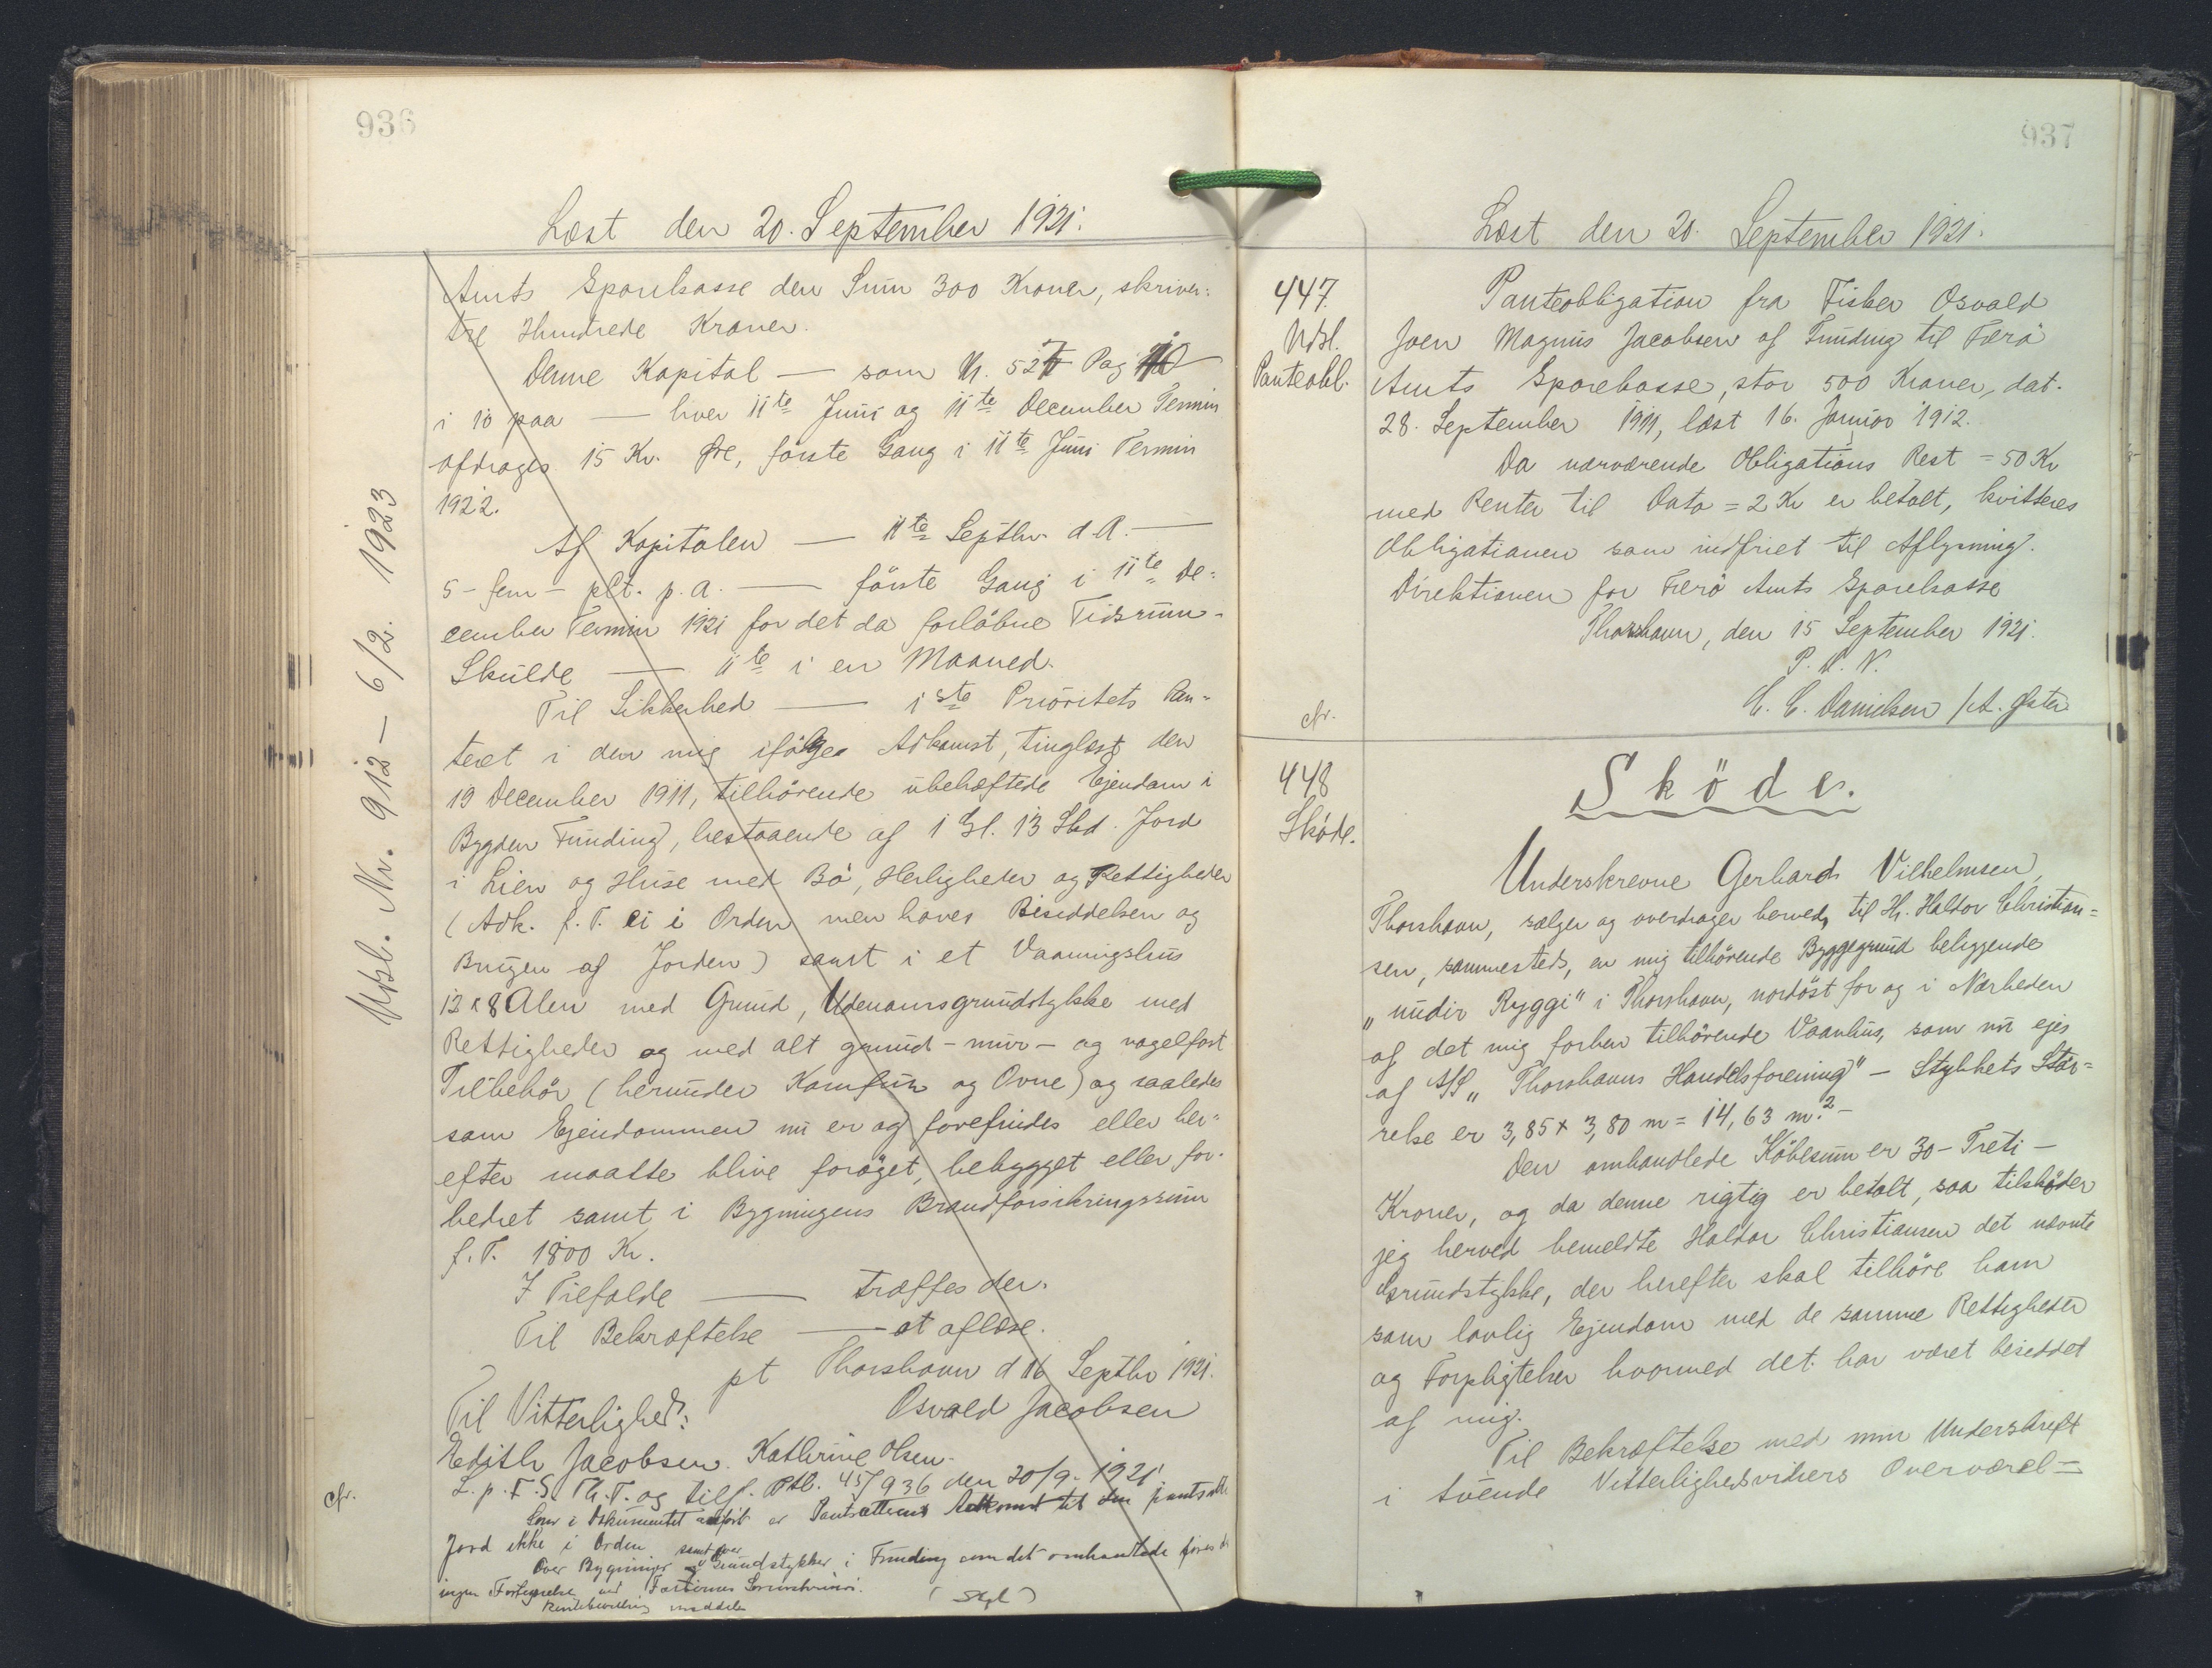 936
Læst den 20. September 1921.
Udsl. Nr. 912 — 6/2. 1923
Amts Sparekasse den Sum 300 Kroner, skriver:
tre Hundrede Kroner.
Denne Kapital — som Nr. 527 Pag
i 10 paa — hver 11te Juni og 11te December Termin
afdrages 15 Kr. Øre, første Gang i 11te Juni Termin
1922.
Af Kapitalen — 11te Septbr. d. A. —
5 - fem - pCt. p. a. — første Gang i 11te De-
cember Termin 1921 for det da forløbne Tidsrum -
Skulde — 11te i en Maaned.
Til Sikkerhed — 1ste Prioritets Pan-
teret i den mig ifølge Adkomst, tinglæst den
19 December 1911, tilhørende ubehæftede Ejendom i
Bygden Funding, bestaaende af 1 Gl. 13 Skd. Jord
i Lien og Huse med Bø, Herligheder og Rettigheder
(Adk. f. T. ei i Orden men haves Besiddelsen og
Brugen af Jorden) samt i et Vaaningshus
12 x 8 Alen med Grund, Udenomsgrundstykke med
Rettigheder og med alt grund - mur - og nagelfast
Tilbehør (herunder Komfur og Ovne) og saaledes
som Ejendommen nu er og forefindes eller her-
efter maatte blive forøget, bebygget eller for-
bedret samt i Bygningens Brandforsikringssum
f. T. 1800 Kr.
I Tilfælde — træffes der.
Til Bekræftelse — at aflæse.
pt Thorshavn d 16 Septbr 1921.
Til Vitterlighed: Osvald Jacobsen
Edith Jacobsen. Kathrine Olsen.
L. p. F. S. Th. T. og tilf. Ptb. 45/936 den 20/9. 1921
cfr. Som i Dokumentet anført er Pantsætterens Adkomst til den pantsatte
Jord ikke i Orden
samt over
Over Bygninger og Grundstykker i Funding som det omhandlede føres der
ingen Fortegnelse ved Færøernes Sorenskriveri.
(Sgl)
937
Læst den 20. September 1921.
447.
Udsl.
Panteobl.
Panteobligation fra Fisker Osvald
Joen Magnus Jacobsen af Funding til Færø
Amts Sparekasse, stor 500 Kroner, dat.
28. September 1911, læst 16. Januar 1912.
Da nærværende Obligations Rest = 50 Kr
med Renter til Dato = 2 Kr er betalt, kvitteres
Obligationen som indfriet til Aflysning.
Direktionen for Færø Amts Sparekasse
Thorshavn, den 15 September 1921.
P. D. V.
cfr. C. C. Danielsen / A.
448
Skøde.
Skøde.
Underskrevne Gerhard Vilhelmsen,
Thorshavn, sælger og overdrager herved til Hr. Haldor Christian-
sen, sammesteds, en mig tilhørende Byggegrund beliggende
„undir Ryggi“ i Thorshavn, nordøst for og i Nærheden
af det mig forhen tilhørende Vaanhus, som nu ejes
af A/S „Thorshavns Handelsforening“ - Stykkets Stør-
relse er 3,85 x 3,80 m = 14,63 m.2 -
Den omhandlede Købesum er 30 - Treti -
Kroner, og da denne rigtig er betalt, saa tilskøder
jeg herved bemeldte Haldor Christiansen det nævnte
Grundstykke, der herefter skal tilhøre ham
som lovlig Ejendom med de samme Rettigheder
og Forpligtelser hvormed det har været besiddet
af mig.
Til Bekræftelse med min Underskrift
i tvende Vitterlighedsvidners Overværel-